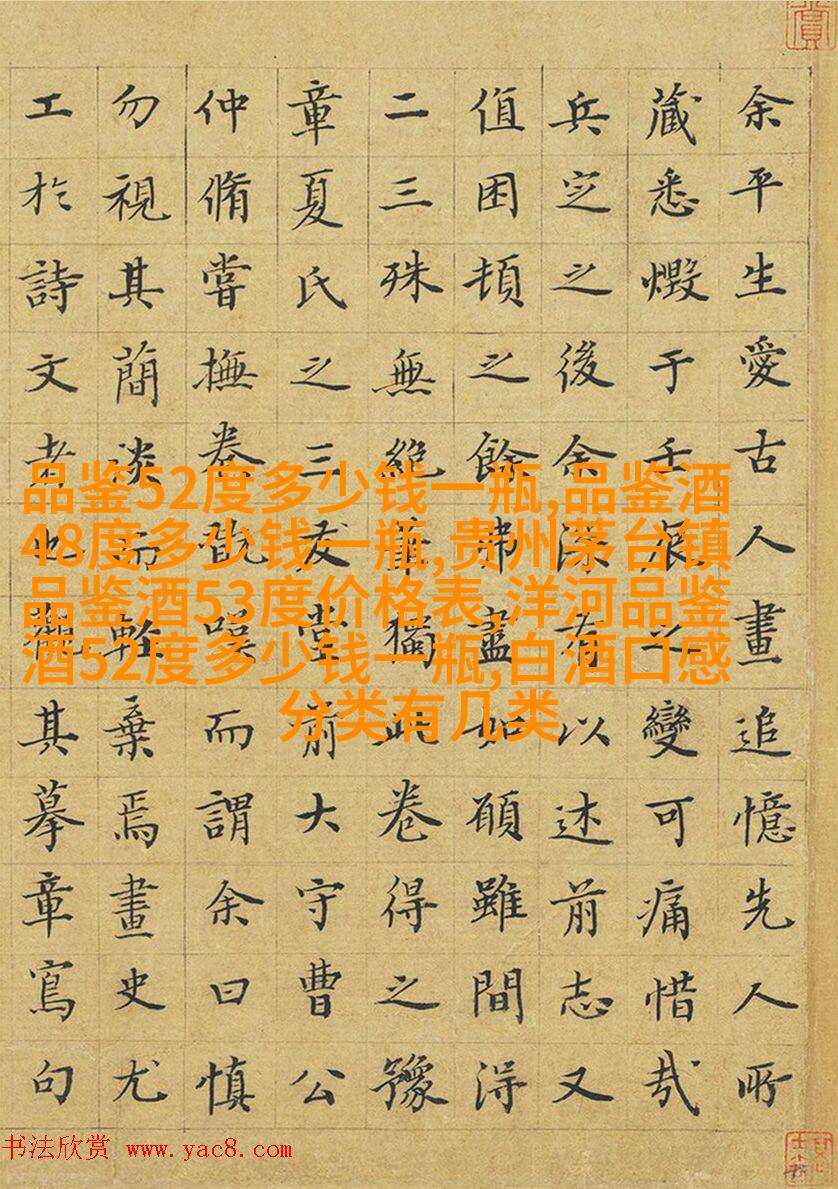 余平生愛古人畫追憶先人所
藏悉燬于壬辰之變可痛惜哉
兵定之後余深有以述前志又
值困頓之餘弗盡如願雖間得
二三殊無絕筆獨此卷得之豫
章夏氏之三友堂前大守曹公
仲脩嘗撫卷嘆而謂余曰慎
勿視其簡淡而輕棄焉畫史尤
工於詩文者觀其摹章寫句
品鉴52度多少钱一瓶,品鉴酒
48度多少钱一瓶,贵州茅台镇
品鉴酒53度价格表,洋河品鉴
酒52度多少钱一瓶,白酒口感
分类有几类
书法欣赏 www.yac8.com